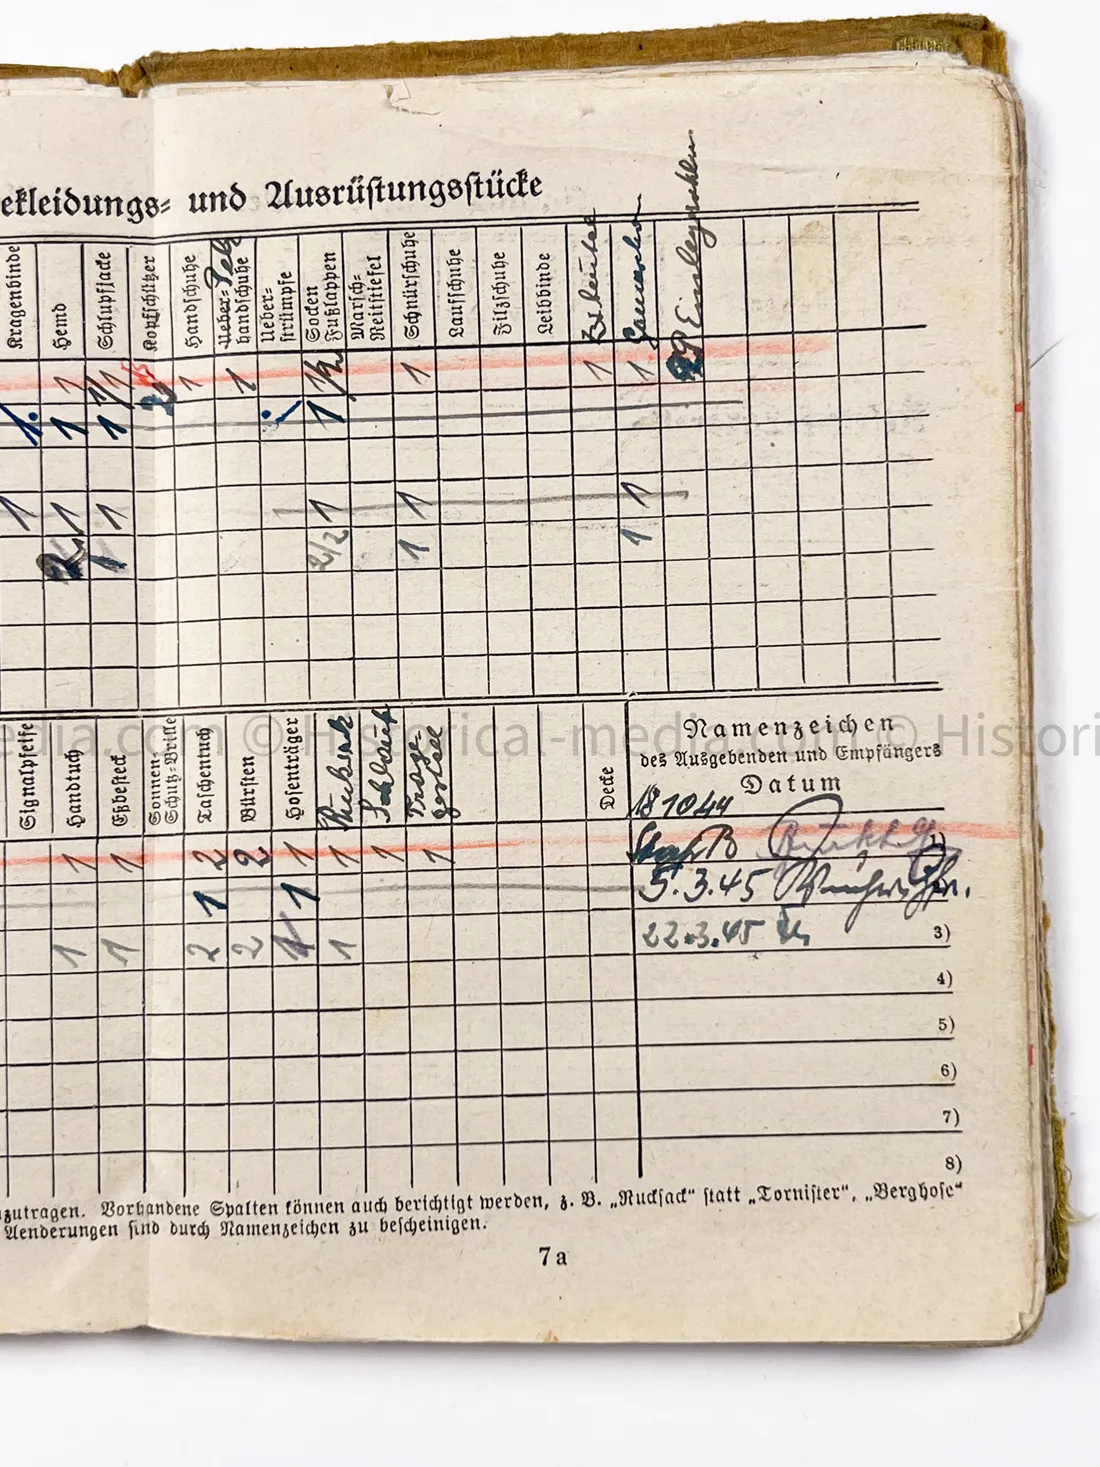 ekleidungs- und Ausrüstungsstücke
Kragenbinde
Hemd
Schlupfjacke
Kopfschützer
Handschuhe
Ueber- Pelz
handschuhe
Ueber-
strümpfe
Socken
Fußlappen
Marsch-
Reitstiefel
Schnürschuhe
Laufschuhe
Filzschuhe
Leibbinde
Gamaschen
P Einlegesohlen
1 1/1 2 1 1 1/2 1 1 1
1. 1 1 1
1 1 1 1 1 1
2 1 2/2 1 1
Signalpfeife
Handtuch
Eßbesteck
Sonnen-
Schutz-Brille
Taschentuch
Bürsten
Hosenträger
Rucksack
Trage-
gestell
Decke
Namenzeichen
des Ausgebenden und Empfängers
Datum
18 10 44
1 1 2 2 1 1 1 1 1)
1 1 5.3.45
1 1 2 2 1 1 22.3.45 3)
4)
5)
6)
7)
8)
zutragen. Vorhandene Spalten können auch berichtigt werden, z. B. „Rucksack“ statt „Tornister“, „Berghose“
Aenderungen sind durch Namenzeichen zu bescheinigen.
7a
edia.com © Historical-media.com © Histori